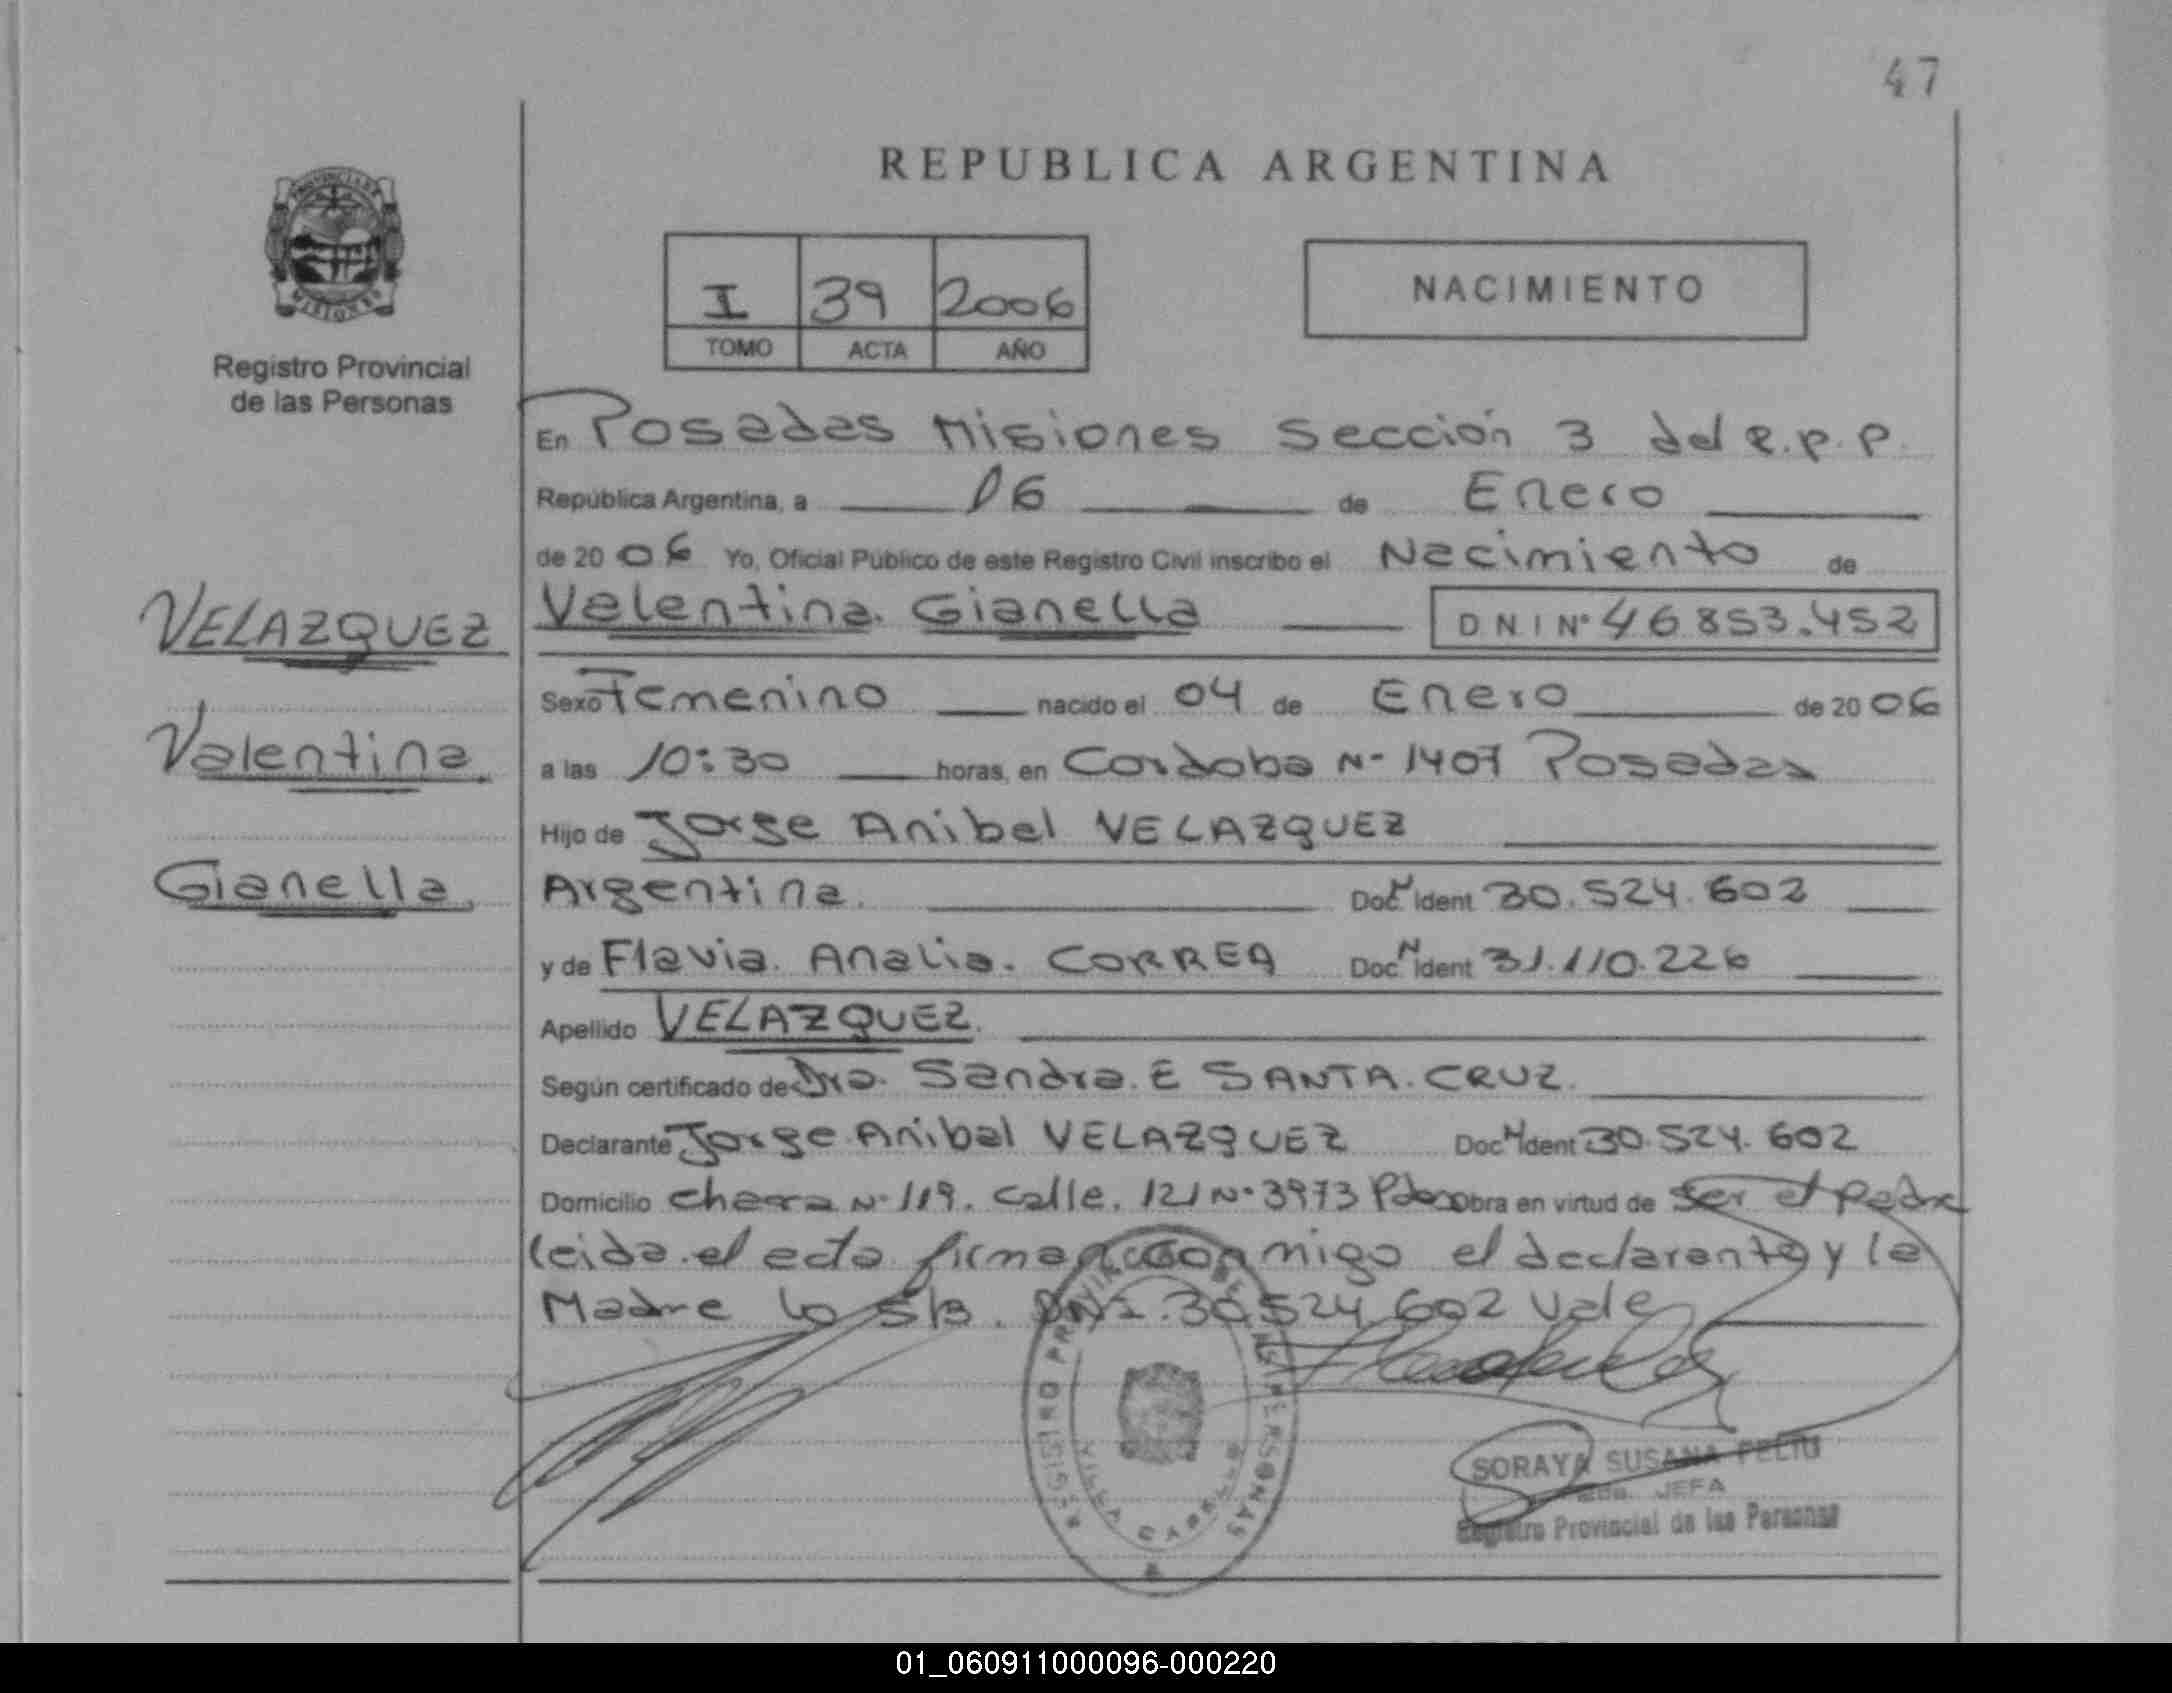 47
REPUBLICA ARGENTINA
PROVINCIA DE
MISIONES
Registro Provincial
de las Personas
I 39 2006
TOMO ACTA AÑO
NACIMIENTO
En Posadas Misiones Sección 3 del R.P.P.
República Argentina, a 16 de Enero
de 20 06 Yo, Oficial Público de este Registro Civil inscribo el Nacimiento de
VELAZQUEZ
Valentina Gianella D N I Nº 46.853.452
Sexo Femenino nacido el 04 de Enero de 20 06
Valentina
a las 10:30 horas, en Cordoba Nº 1407 Posadas
Hijo de Jorge Anibal VELAZQUEZ
Gianella
Argentina. Doc N Ident 30.524.602
y de Flavia Analia CORREA Doc N Ident 31.110.226
Apellido VELAZQUEZ
Según certificado de Dra. Sandra E SANTA CRUZ
Declarante Jorge Anibal VELAZQUEZ Doc N Ident 30.524.602
Domicilio Chacra Nº 119. Calle. 121 Nº 3973 Pdas Obra en virtud de Ser el Padre
leida el acta firman conmigo el declarante y la
Madre lo S/B. DNI 30.524.602 Vale
REGISTRO PROVINCIAL DE LAS PERSONAS
VILLA CABELLO
SORAYA SUSANA FELTU
JEFA
Registro Provincial de las Personas
01_060911000096-000220